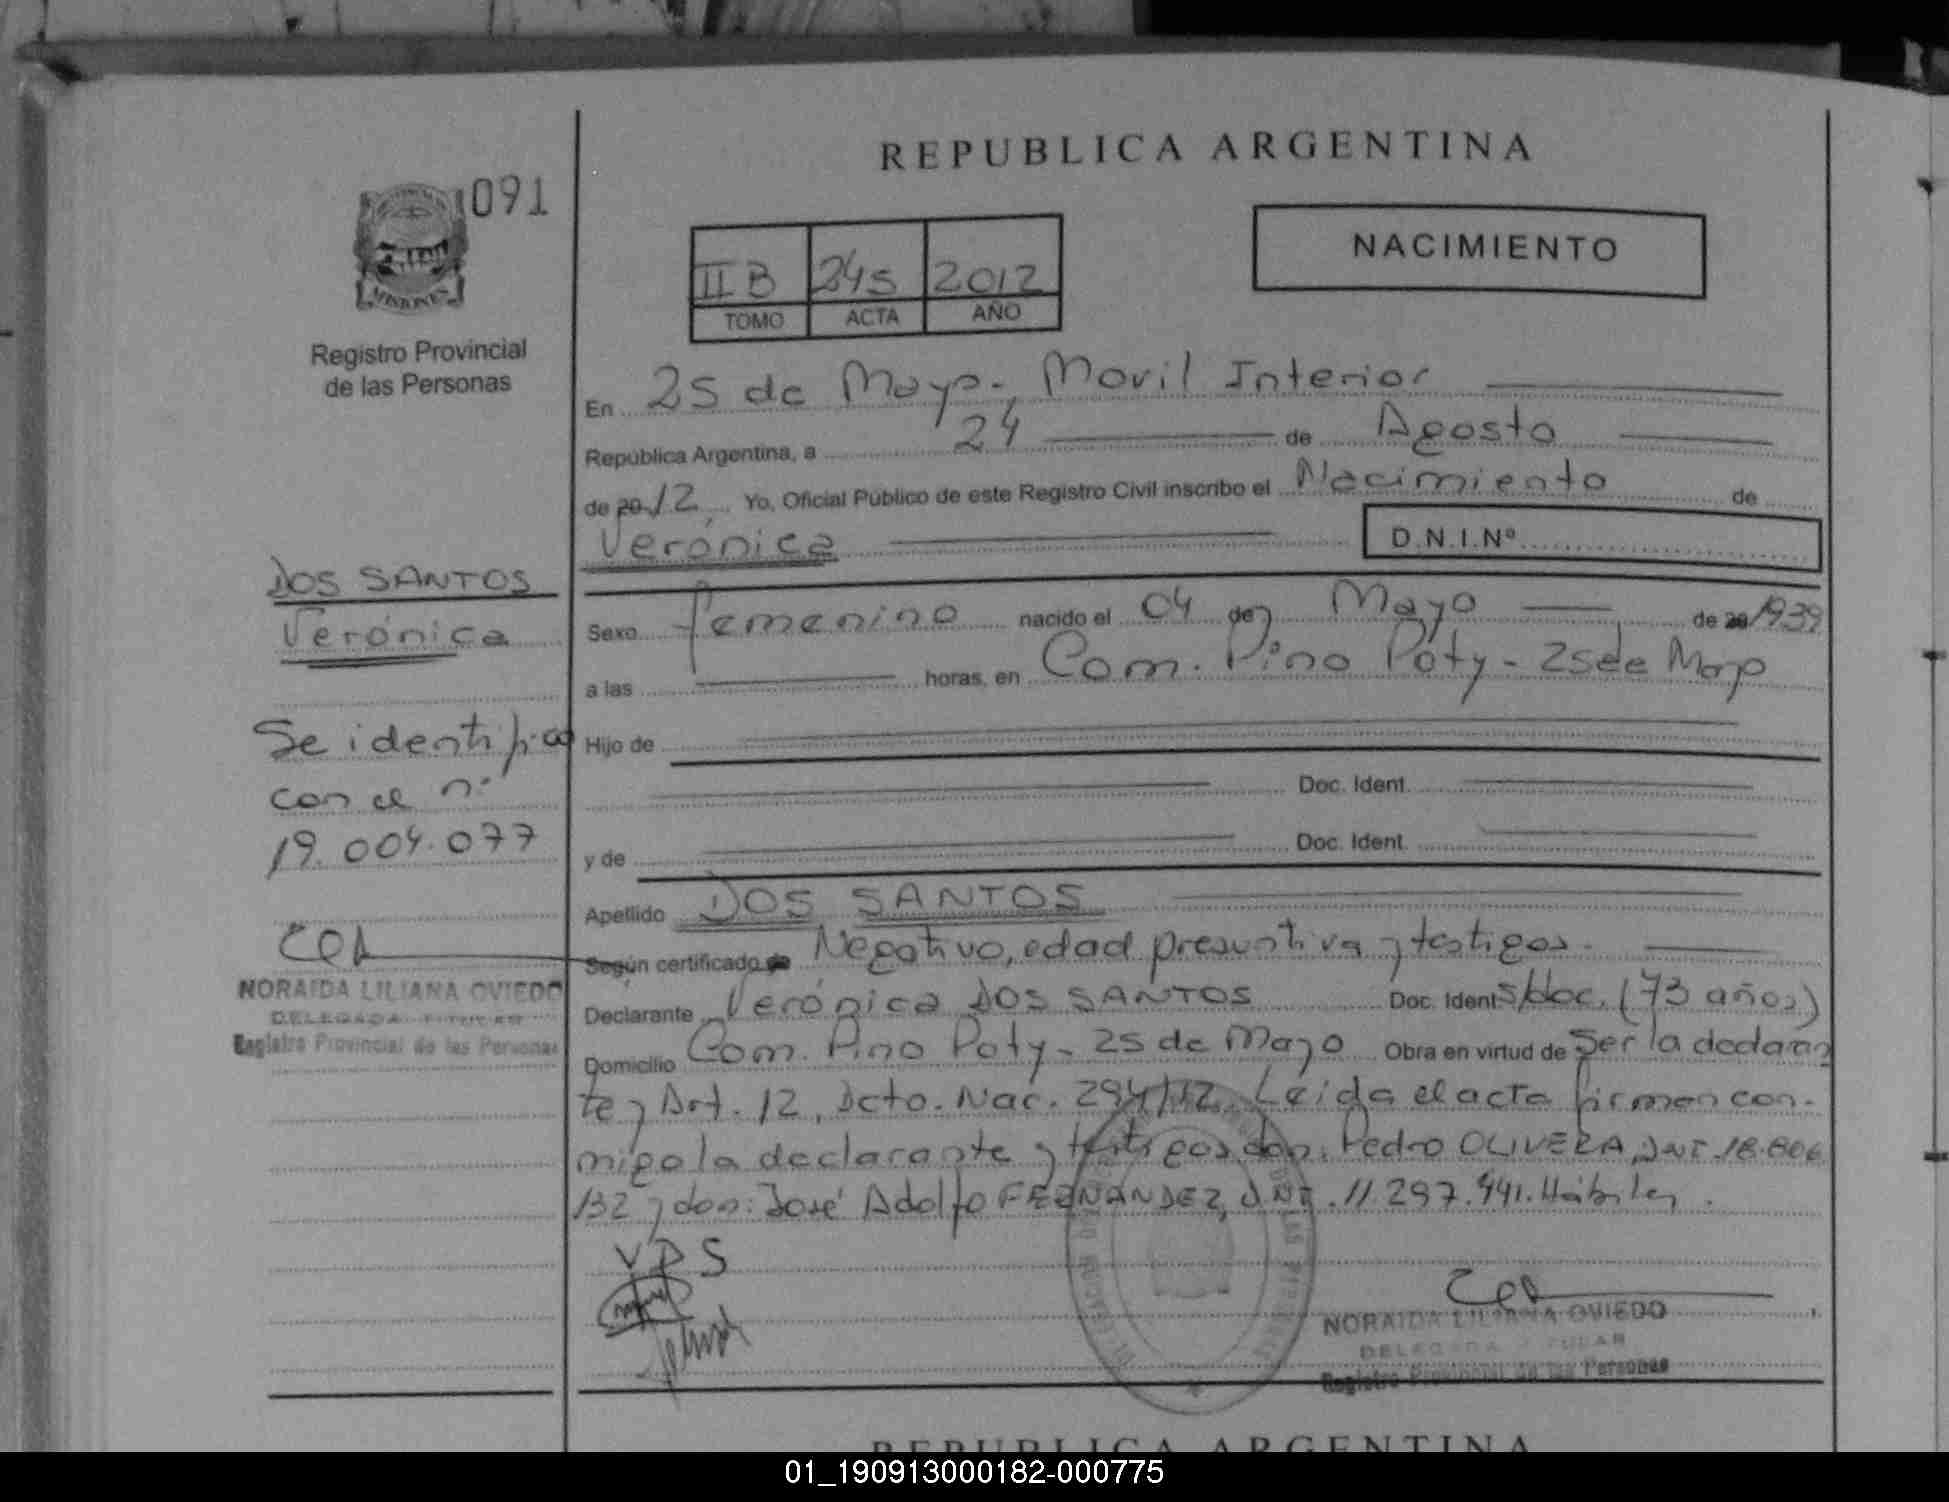 REPUBLICA ARGENTINA
091
NACIMIENTO
II B 245 2012
TOMO ACTA AÑO
MISIONES
Registro Provincial
de las Personas
En 25 de Mayo. Movil Interior
República Argentina, a 24 de Agosto
de 20 12, Yo, Oficial Público de este Registro Civil inscribo el Nacimiento de
Verónica
D.N.I.Nº
DOS SANTOS
Verónica
Se identifica
con el nº
19.004.077
NORAIDA LILIANA OVIEDO
DELEGADA TITULAR
Registro Provincial de las Personas
Sexo femenino nacido el 04 de Mayo de 20 1939
a las horas, en Com. Pino Poty - 25 de Mayo
Hijo de
Doc. Ident.
y de Doc. Ident.
Apellido DOS SANTOS
Según certificado de Negativo, edad presuntiva y testigos.
Declarante Verónica DOS SANTOS Doc. Ident S/doc. (73 años)
Domicilio Com. Pino Poty - 25 de Mayo Obra en virtud de Ser la declaran
te y Art. 12, Dcto. Nac. 294/12. Leída el acta firman con-
migo la declarante y testigos don: Pedro OLIVERA, DNI. 18.806
132 y don: José Adolfo FERNANDEZ, DNI. 11.297.941. Hábiles.
V D S
NORAIDA LILIANA OVIEDO
DELEGADA TITULAR
Registro Provincial de las Personas
REPUBLICA ARGENTINA
01_190913000182-000775